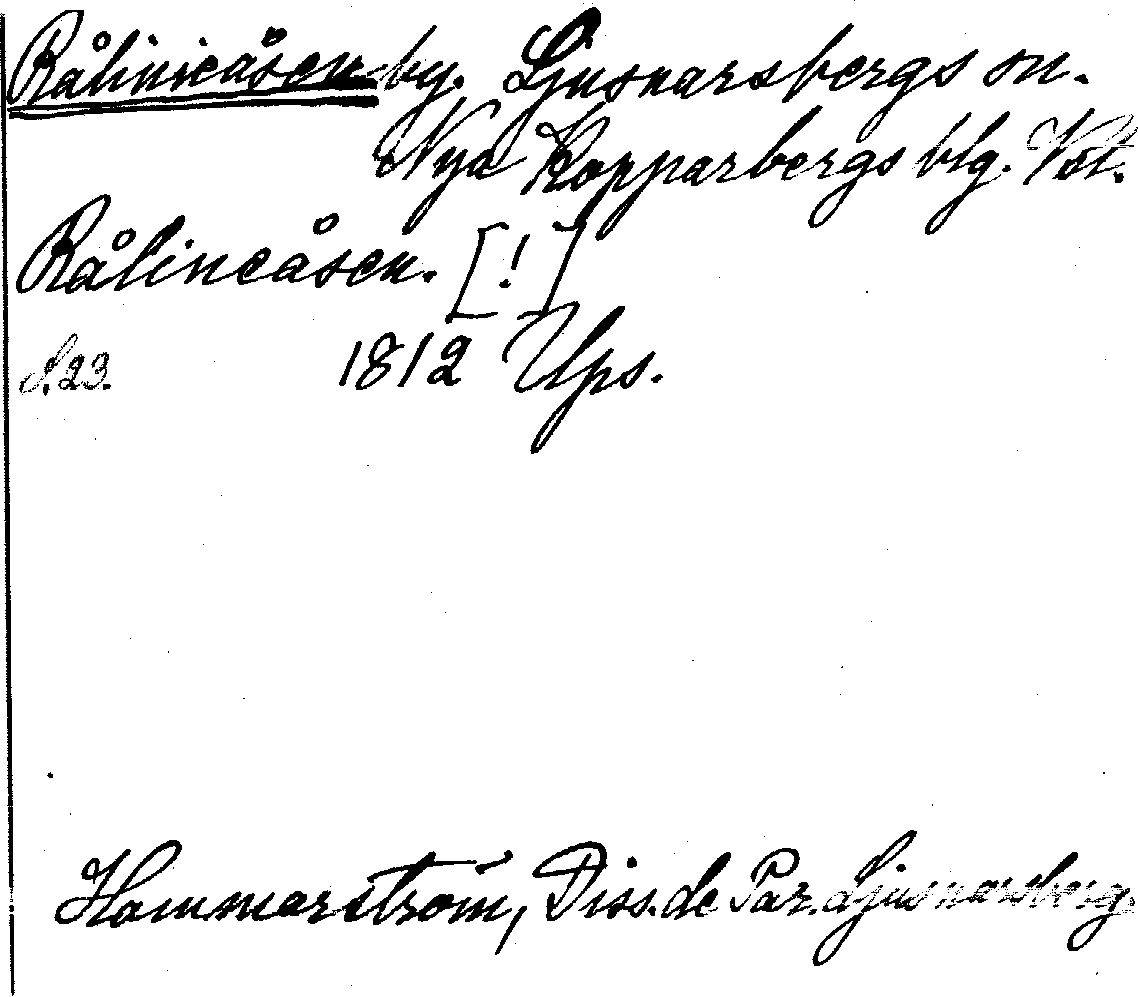 Rålinieåsen by. Ljusnarsbergs sn.
Nya Kopparbergs blg. Vstm.
Rålineåsen. [!]
S. 23. 1812 Ups.
Hammarström, Diss. de Par. Ljusnarsberg.